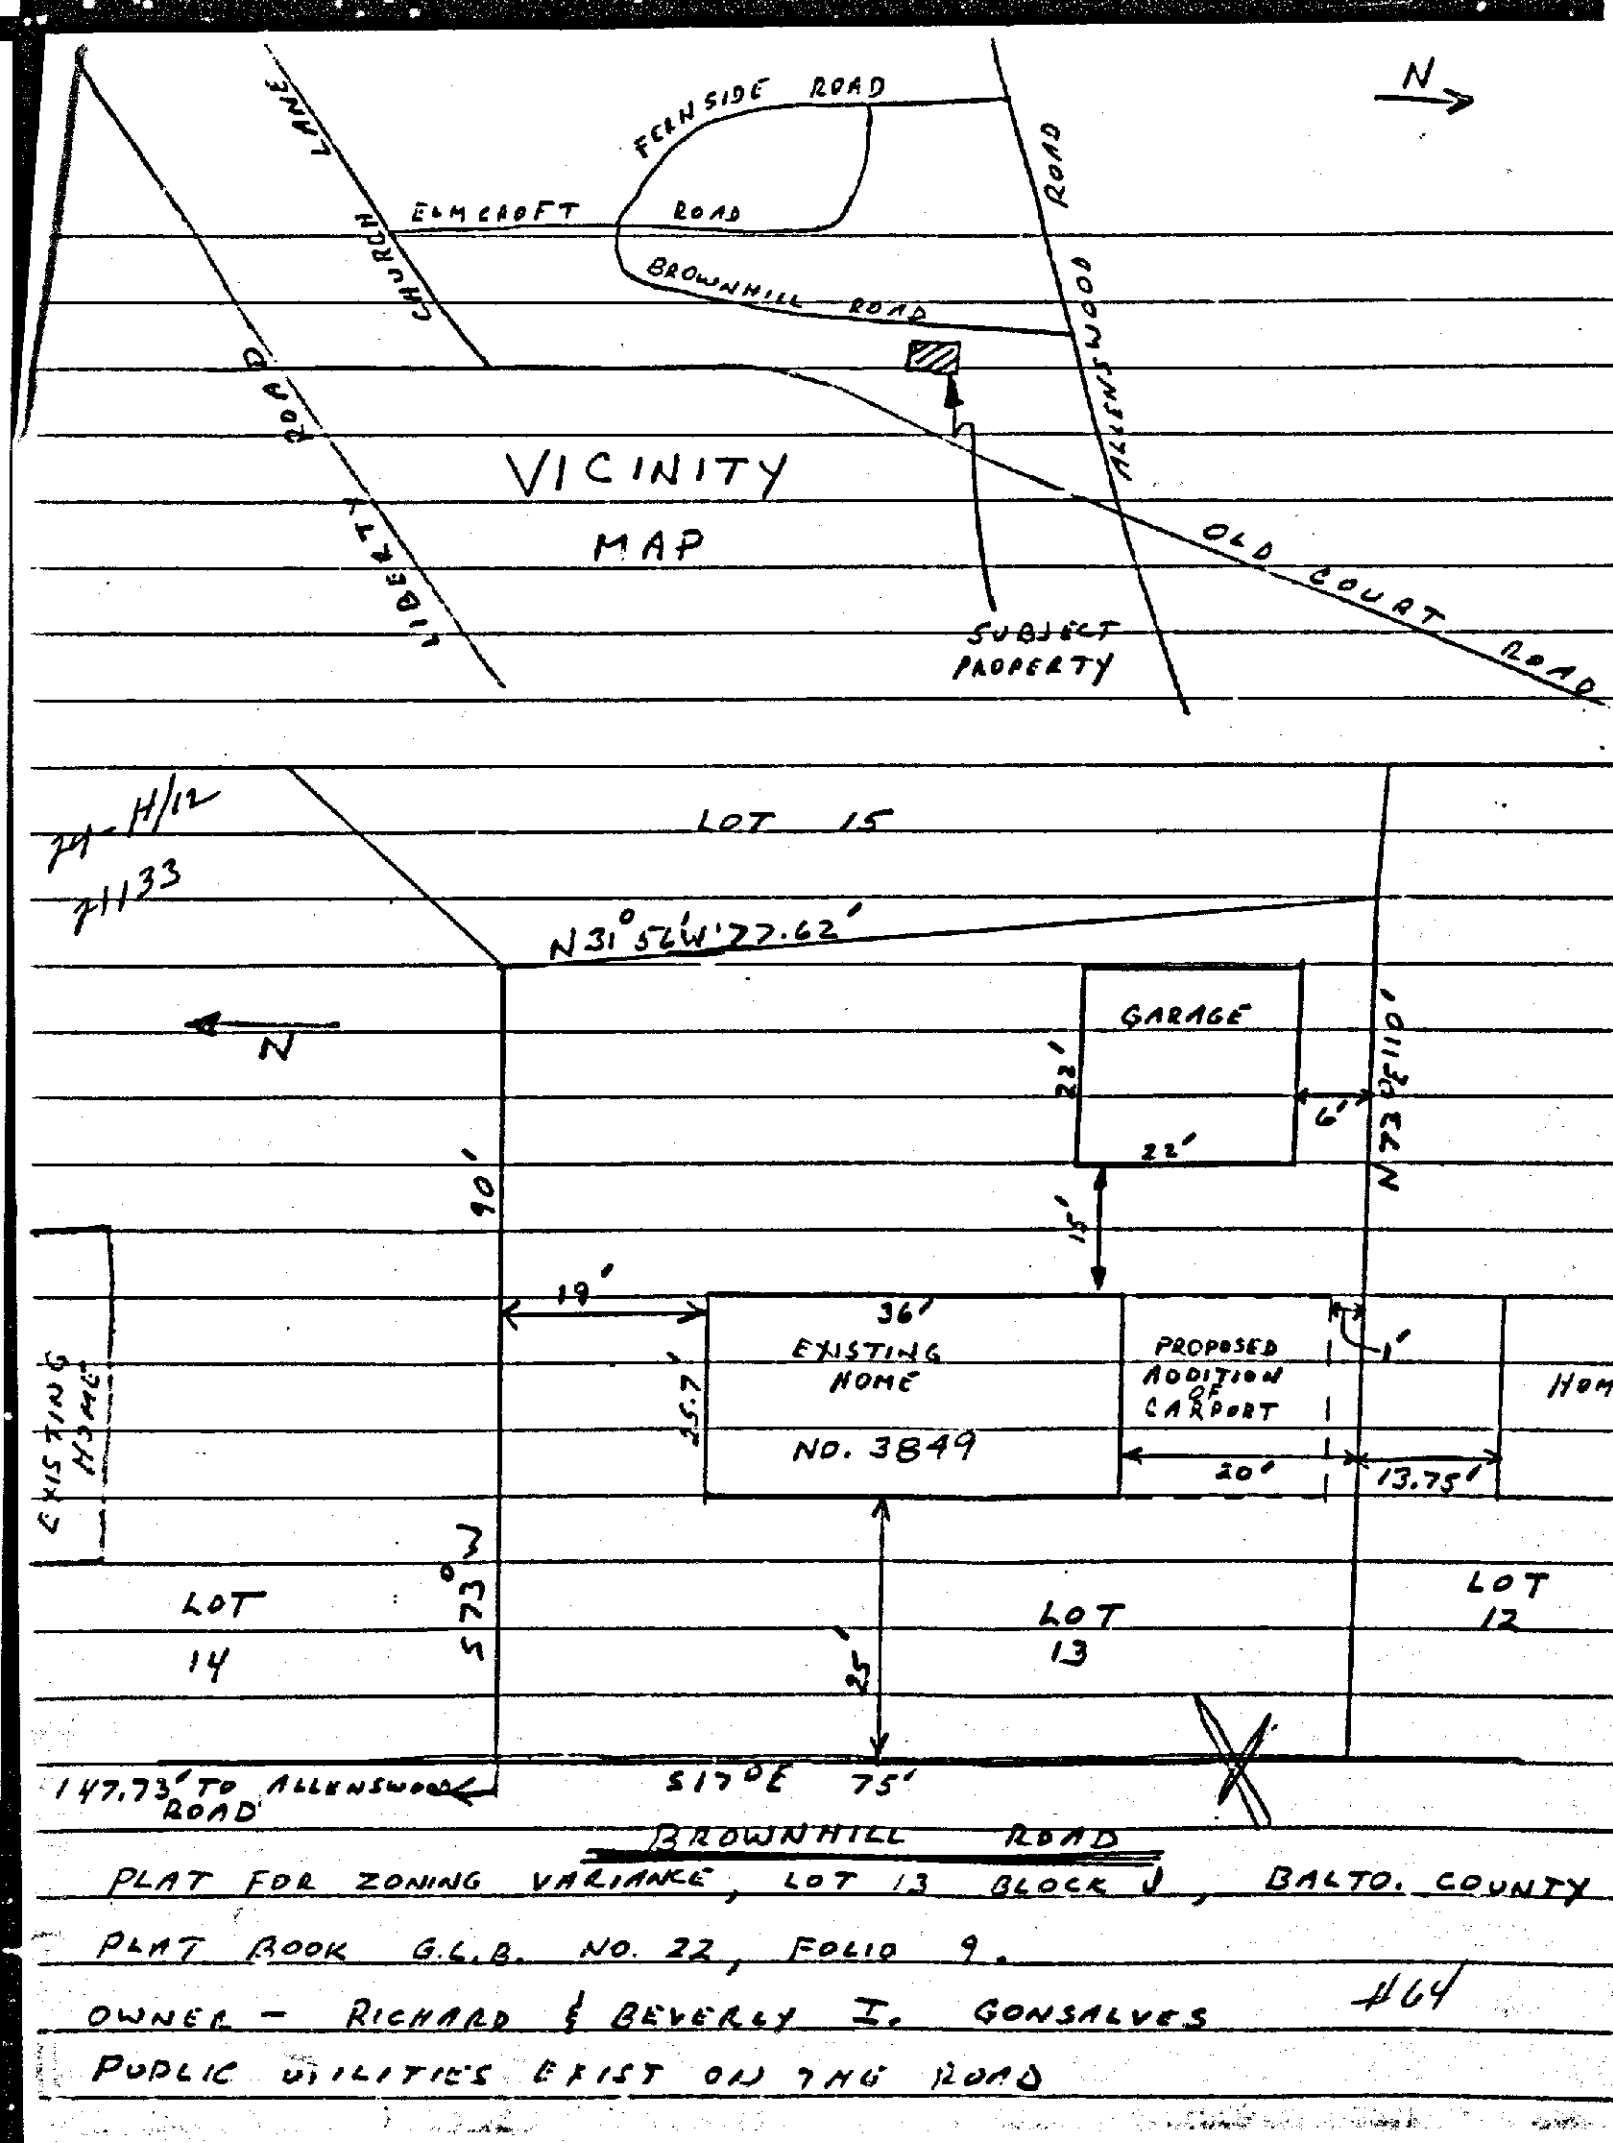 N
LANE
CHURCH
FERNSIDE ROAD
ELMCROFT ROAD
BROWNHILL ROAD
ALLENSWOOD ROAD
LIBERTY ROAD
VICINITY
MAP
OLD COURT ROAD
SUBJECT
PROPERTY
H/12
LOT 15
33
N31°56'W'77.62'
N
GARAGE
22'
22'
6'
N 73°E 110'
15'
90'
S 73°W
19'
36'
EXISTING
HOME
NO. 3849
25.7'
PROPOSED
ADDITION
OF
CARPORT
1'
20'
13.75'
HOM
EXISTING
HOME
25'
LOT
14
LOT
13
LOT
12
147.73' TO ALLENSWOOD
ROAD
S17°E 75'
BROWNHILL ROAD
PLAT FOR ZONING VARIANCE, LOT 13 BLOCK J, BALTO. COUNTY
PLAT BOOK G.L.B. NO. 22, FOLIO 9.
OWNER - RICHARD & BEVERLY I. GONSALVES
#64
PUBLIC UTILITIES EXIST ON THE ROAD